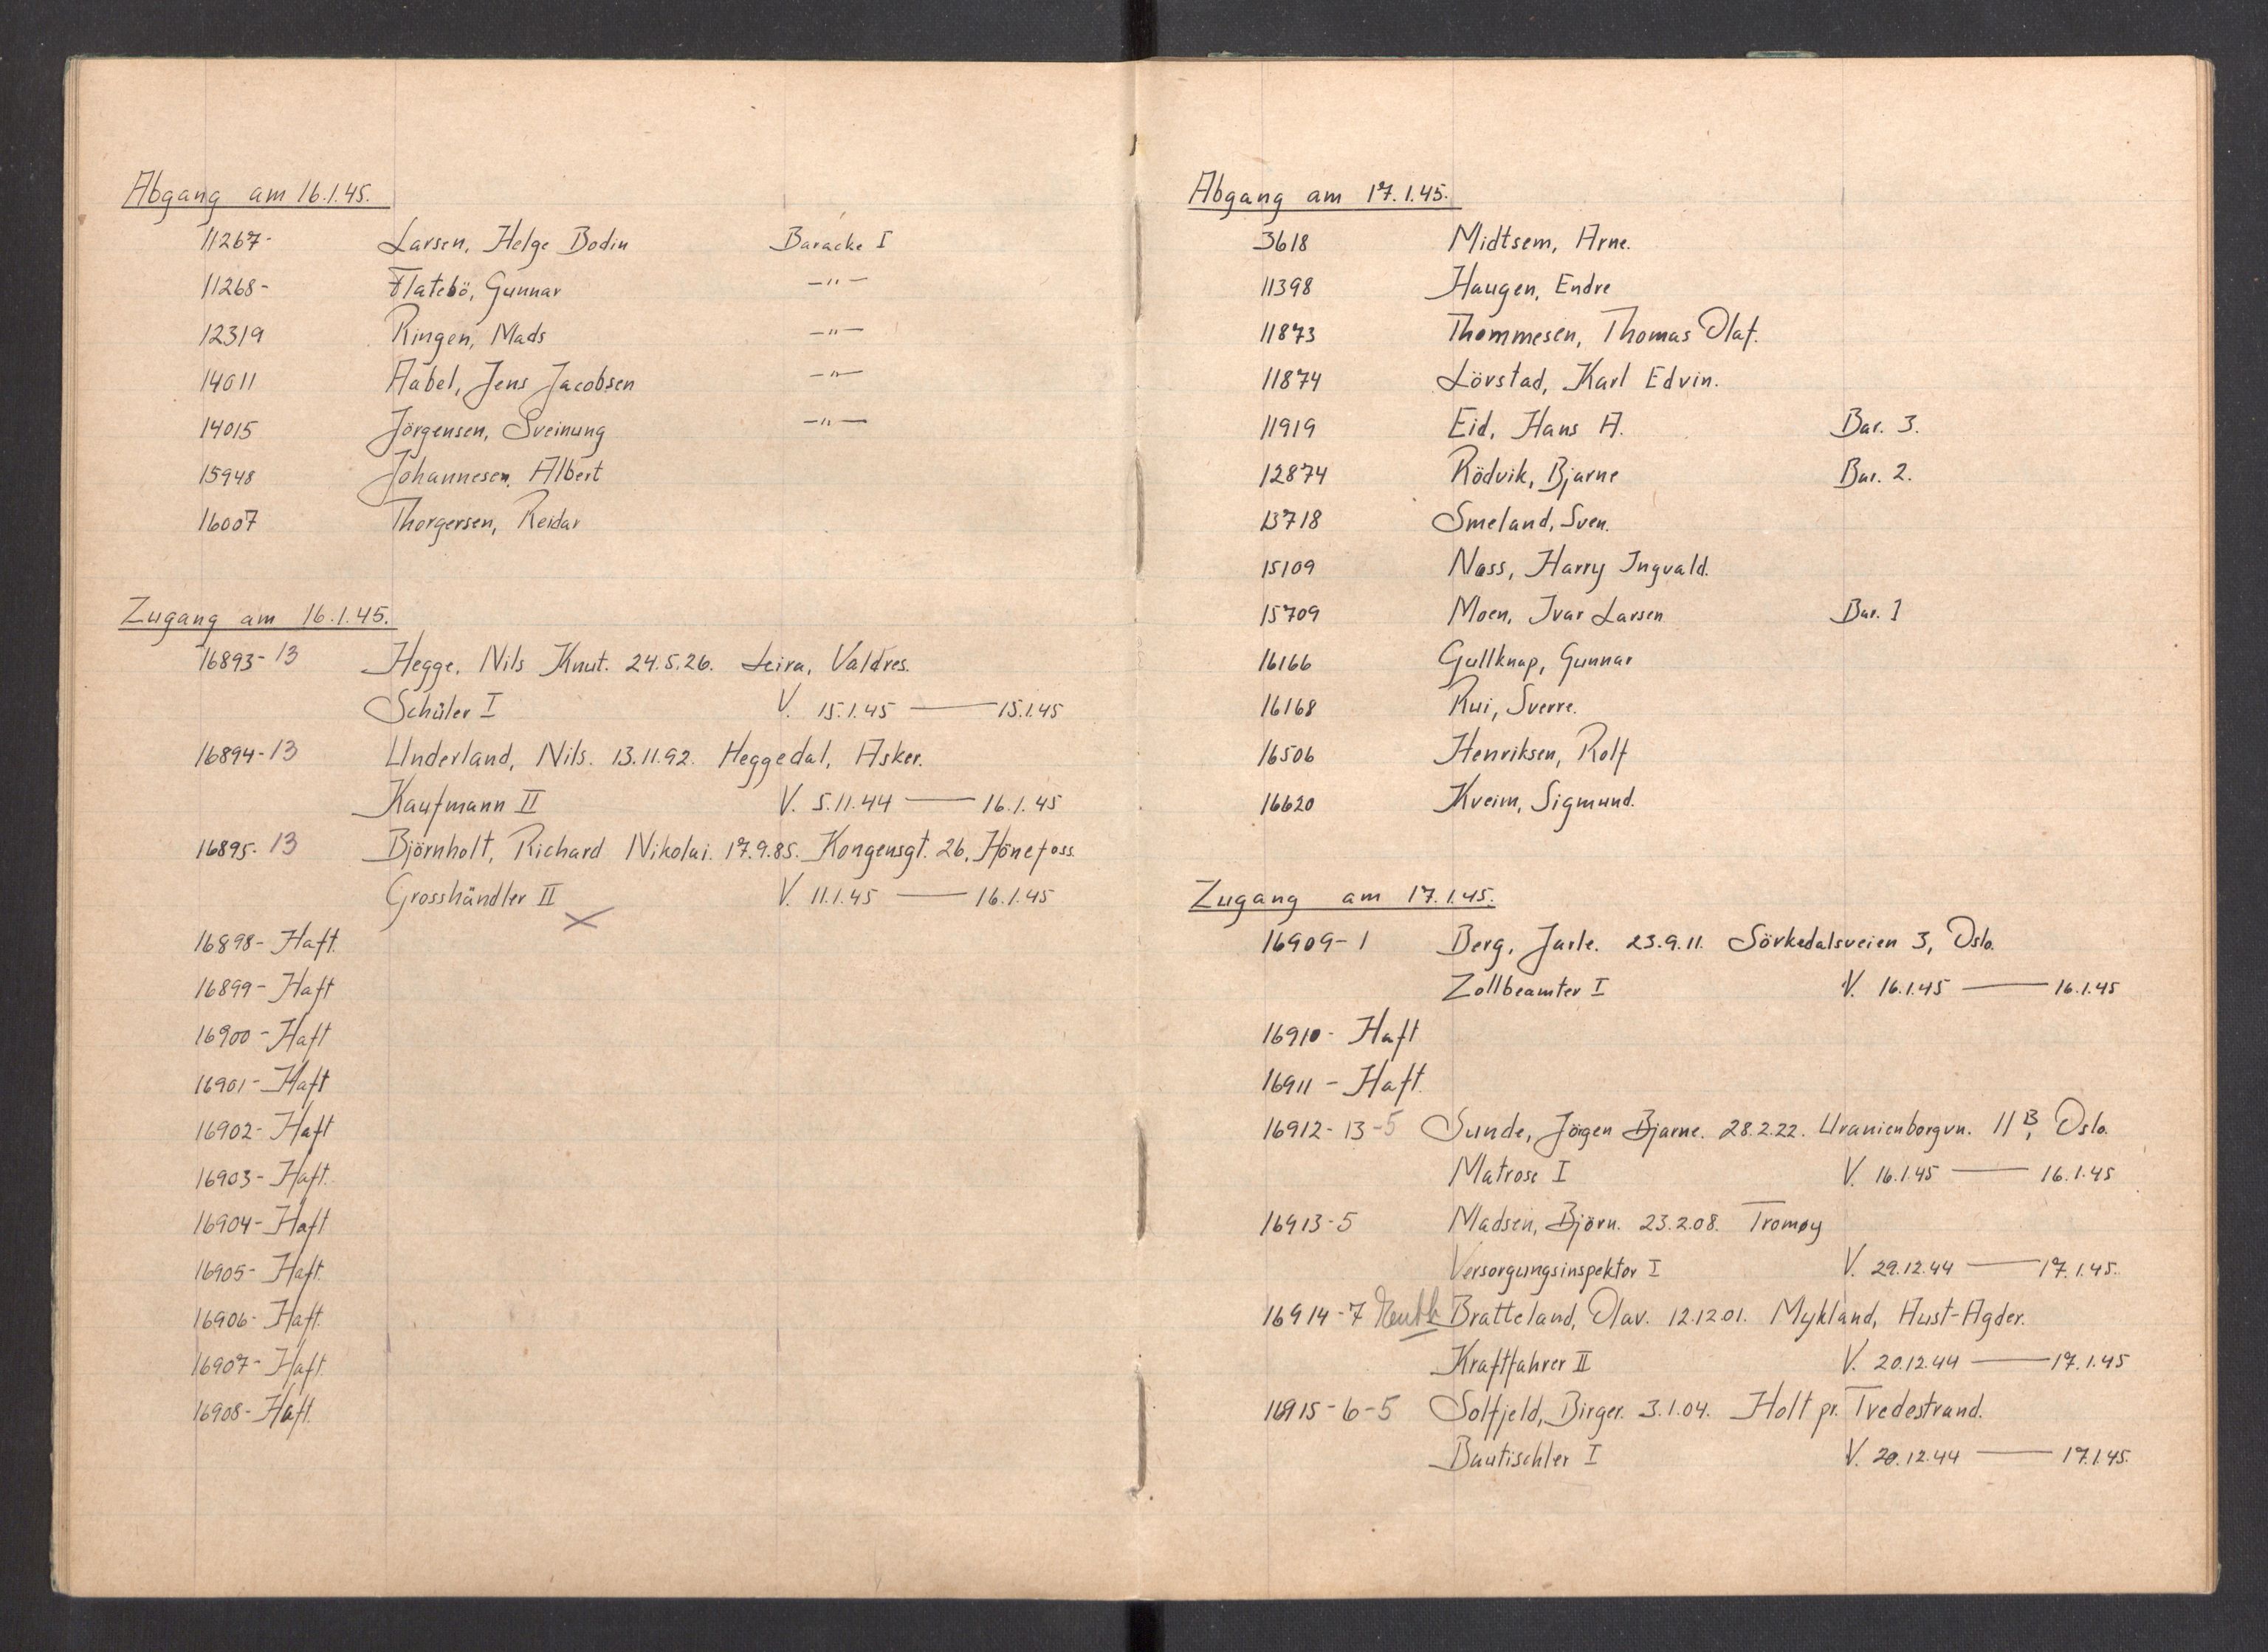 Abgang am 16.1.45.
11267- Larsen, Helge Bodin Baracke I
11268- Flatebö, Gunnar —"—
12319 Ringen, Mads —"—
14011 Aabel, Jens Jacobsen —"—
14015 Jörgensen, Sveinung —"—
15948 Johannesen, Albert
16007 Thorgersen, Reidar
Zugang am 16.1.45.
16893-13 Hegge, Nils Knut. 24.5.26. Leira, Valdres.
Schüler I V. 15.1.45 — 15.1.45
16894-13 Underland, Nils. 13.11.92. Heggedal, Asker.
Kaufmann II V. 5.11.44 — 16.1.45
16895-13 Björnholt, Richard Nikolai. 17.9.85. Kongensgt. 26, Hönefoss.
Grosshändler II V. 11.1.45 — 16.1.45
16898- Haft.
16899- Haft
16900- Haft
16901- Haft
16902- Haft
16903- Haft.
16904- Haft
16905- Haft.
16906- Haft.
16907- Haft.
16908- Haft.
Abgang am 17.1.45.
3618 Midtsem, Arne.
11398 Haugen, Endre
11873 Thommesen, Thomas Olaf.
11874 Lövstad, Karl Edvin.
11919 Eid, Hans A. Bar. 3.
12874 Rödvik, Bjarne Bar. 2.
13718 Smeland, Sven.
15109 Nass, Harry Ingvald.
15709 Moen, Ivar Larsen Bar. 1
16166 Gullknap, Gunnar
16168 Rui, Sverre.
16506 Henriksen, Rolf
16620 Kveim, Sigmund.
Zugang am 17.1.45.
16909-1 Berg, Jarle. 23.9.11. Sörkedalsveien 3, Oslo.
Zollbeamter I V. 16.1.45 — 16.1.45
16910- Haft
16911- Haft.
16912-13-5 Sunde, Jörgen Bjarne. 28.2.22. Uranienborgvn. 11B, Oslo.
Matrose I V. 16.1.45 — 16.1.45
16913-5 Madsen, Björn. 23.2.08. Tromøy
Versorgungsinspektor I V. 29.12.44 — 17.1.45.
16914-7 Bratteland, Olav. 12.12.01. Mykland, Aust-Agder.
Kraftfahrer II V. 20.12.44 — 17.1.45
16915-6-5 Solfjeld, Birger. 3.1.04. Holt pr. Tvedestrand.
Bautischler I V. 20.12.44 — 17.1.45.